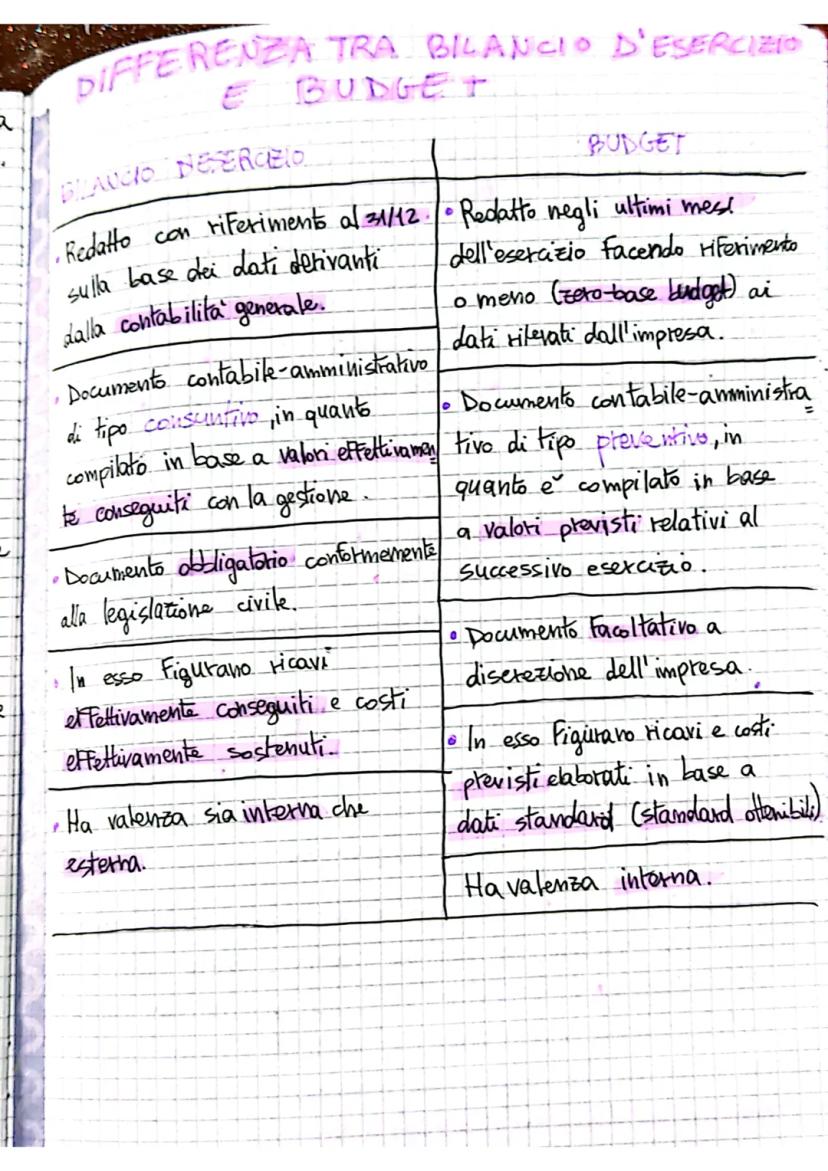 DIFFERENZA TRA BILANCIO D'ESERCIZIO
E BUDGET
BILANCIO D'ESERCIZIO
• Redatto con riferimento al 31/12
sulla base dei dati derivanti
dalla contabilità generale.
• Documento contabile-amministrativo
di tipo consuntivo, in quanto
compilato in base a valori effettivamen
te conseguiti con la gestione.
• Documento obbligatorio conformemente
alla legislazione civile.
• In esso figurano ricavi
effettivamente conseguiti e costi
effettivamente sostenuti.
• Ha valenza sia interna che
esterna.
BUDGET
• Redatto negli ultimi mesi
dell'esercizio facendo riferimento
o meno (zero-base budget) ai
dati rilevati dall'impresa.
• Documento contabile-amministra
tivo di tipo preventivo, in
quanto è compilato in base
a valori previsti relativi al
successivo esercizio.
• Documento facoltativo a
discrezione dell'impresa.
• In esso figurano ricavi e costi
previsti elaborati in base a
dati standard (standard ottenibili)
Ha valenza interna.
a